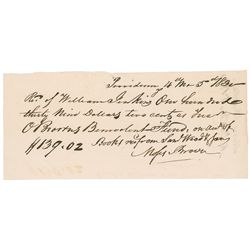 Providence 4th Mo 5th
Rc. of William Jenkins One hundred
thirty Nine Dollars two cents as Treasr
O Browns Benevolent Fund, on acct of
Books recd from Saml Wood &
$139.02
Moses Brown